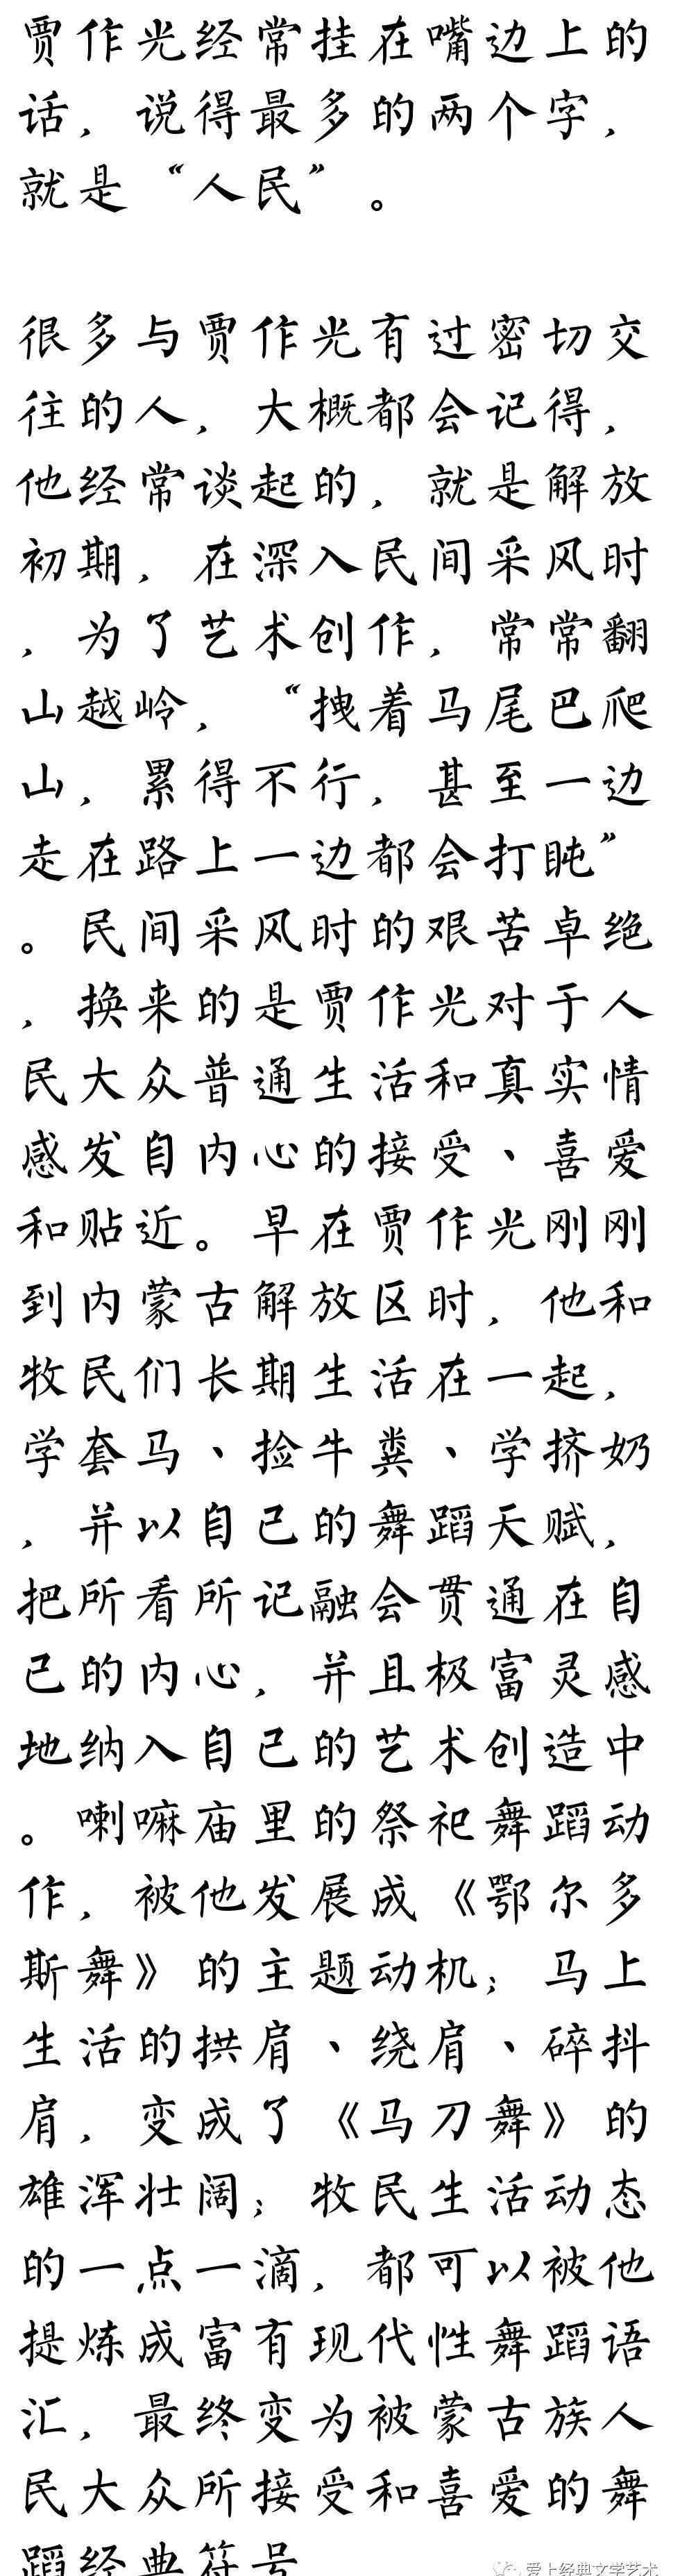 贾作光经常挂在嘴边上的
话，说得最多的两个字，
就是“人民”。
很多与贾作光有过密切交
往的人，大概都会记得，
他经常谈起的，就是解放
初期，在深入民间采风时
，为了艺术创作，常常翻
山越岭，“拽着马尾巴爬
山，累得不行，甚至一边
走在路上一边都会打盹”
。民间采风时的艰苦卓绝
，换来的是贾作光对于人
民大众普通生活和真实情
感发自内心的接受、喜爱
和贴近。早在贾作光刚刚
到内蒙古解放区时，他和
牧民们长期生活在一起，
学套马、捡牛粪、学挤奶
，并以自己的舞蹈天赋，
把所看所记融会贯通在自
己的内心，并且极富灵感
地纳入自己的艺术创造中
。喇嘛庙里的祭祀舞蹈动
作，被他发展成《鄂尔多
斯舞》的主题动机；马上
生活的拱肩、绕肩、碎抖
肩，变成了《马刀舞》的
雄浑壮阔；牧民生活动态
的一点一滴，都可以被他
提炼成富有现代性舞蹈语
汇，最终变为被蒙古族人
民大众所接受和喜爱的舞
蹈经典符号
爱上经典文学艺术